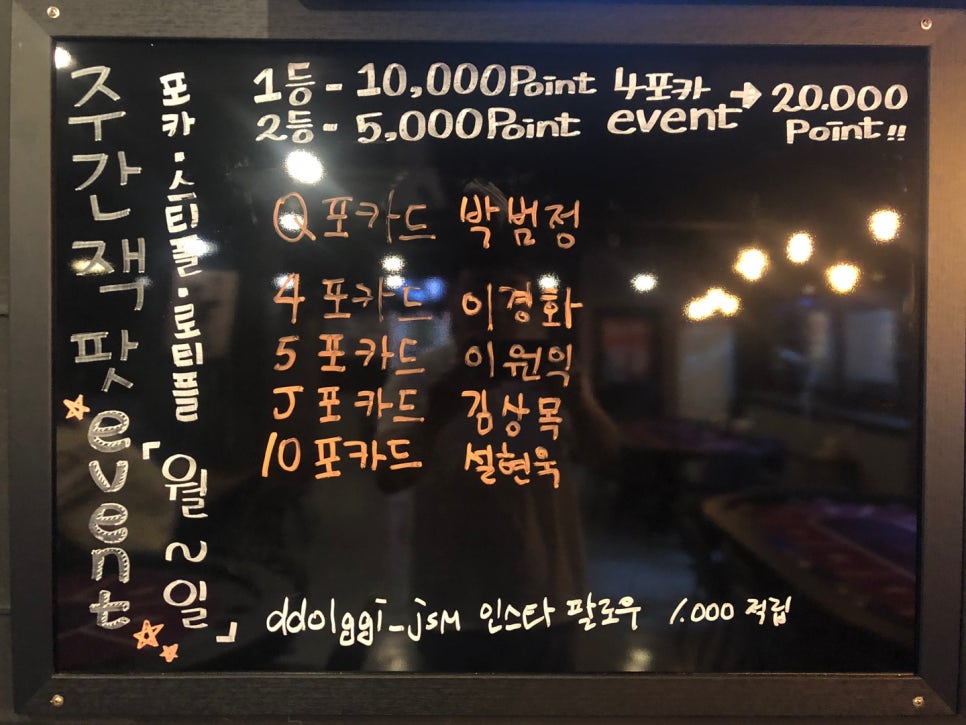 주간잭팟 event
포카·스티플·로티플
「월~일」
1등 - 10,000Point 4포카 event → 20.000 Point!!
2등 - 5,000Point
Q 포카드 박범정
4 포카드 이경화
5 포카드 이원익
J 포카드 김상목
10 포카드 설현욱
ddolggi_jsm 인스타 팔로우 1.000 적립